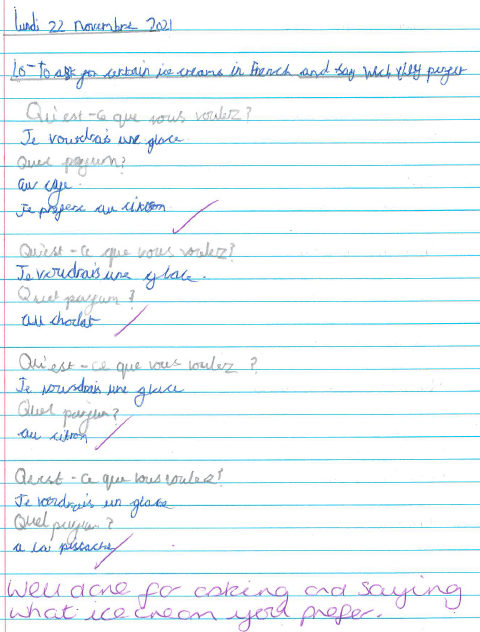 lundi 22 novembre 2021
LO - To ask for certain ice creams in French and say which they prefer
Qu'est-ce que vous voulez?
Je vourdrais une glace
Quel pargum?
au cafe.
Je préfere au citron
Qu'est-ce que vous voulez?
Je voudrais une glace.
Quel pargum?
au choclat
Qu'est-ce que vous voulez?
Je vourdrais une glace
Quel pargum?
au citron
Qu'est-ce que vous voulez?
Je vordrais un glace
Quel pargum?
a la pistache
Well done for asking and saying
what ice cream you'd prefer.